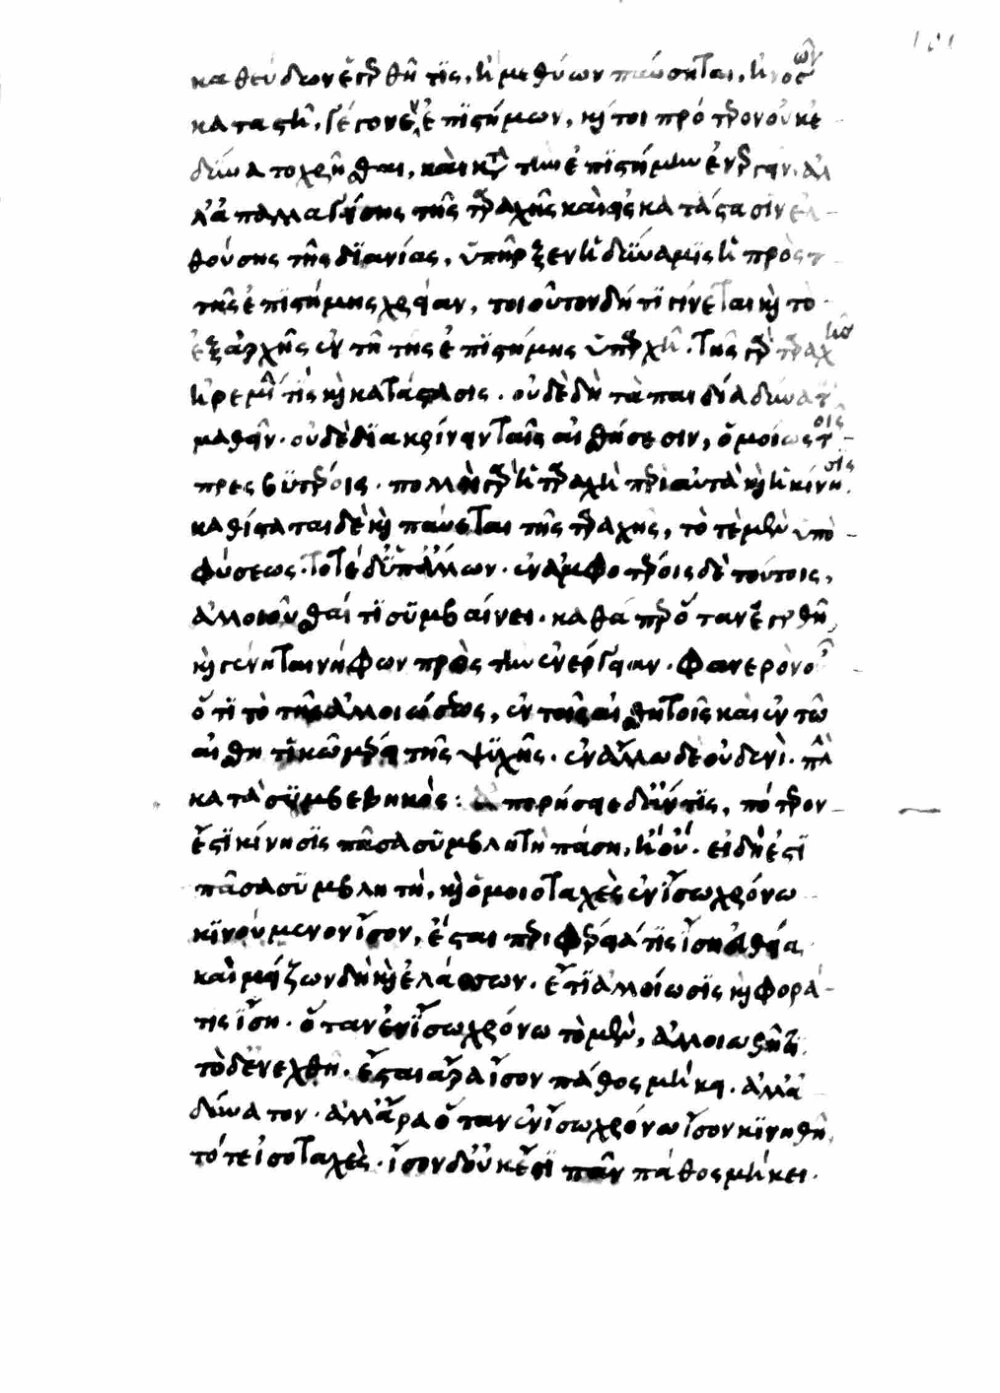 καθεύδων ἐγερθῆ τις, ἢ μεθύων παύσηται, ἢ νοσῶν
καταστῆ, γέγονεν ἐπιστήμων, καίτοι πρότερον οὐκ ἐ
δύνατο χρῆσθαι, καὶ κατὰ τὴν ἐπιστήμην ἐνεργεῖν. ἀλ
λ' ἀπαλλαγείσης τῆς ταραχῆς καὶ εἰς κατάστασιν ἐλ
θούσης τῆς διανίας, ὑπῆρξεν ἡ δύναμις ἡ πρὸς τ
τῆς ἐπιστήμης χρείαν, τοιοῦτον δή τι γίνεται καὶ τὸ
ἐξ ἀρχῆς ἐν τῆ τῆς ἐπιστήμης ὑπαρχῆ. τῆς γὰρ ταραχῆς
ἠρεμία τις καὶ κατάστασις. οὐδὲ δὴ τὰ παιδία δύναται
μαθεῖν. οὐδὲ διακρίνειν ταῖς αἰσθήσεσιν, ὁμοίως τοῖς
πρεσβυτέροις. πολλὴ γὰρ ἡ ταραχὴ περὶ αὐτὰ καὶ ἡ κίνησις.
καθίσταται δὲ καὶ παύεται τῆς ταραχῆς, τὸ τὲ μὲν ὑπὸ
φύσεως. τοτὲ δ' ὑπ' ἄλλων. ἐν ἀμφοτέροις δὲ τούτοις,
ἀλλοιοῦσθαί τι συμβαίνει. καθάπερ ὅταν ἐγερθῆ
καὶ γένηται νήφων πρὸς τὴν ἐνέργειαν. φανερὸν οὖν
ὅτι τὸ τῆς ἀλλοιώσεως, ἐν τοῖς αἰσθητοῖς καὶ ἐν τῶ
αἰσθητικῶ μέρει τῆς ψυχῆς. ἐν ἄλλω δὲ οὐδενὶ. πλὴν
κατὰ συμβεβηκός: ἀπορήσειε δ' ἄν τις, πότερον
ἔστι κίνησις πᾶσα συμβλητὴ πάση, ἢ οὔ. εἰ δὴ ἐστι
πᾶσα συμβλητή, καὶ ὁμοιοταχὲς ἐν ἴσω χρόνω
κινούμενον ἴσον, ἔσται περιφερειά τις ἴση εὐθεία,
καὶ μείζων δὴ καὶ ἐλάσσων. ἔτι ἀλλοίωσις καὶ φορά
τις ἴση. ὅταν ἐν ἴσω χρόνω τὸ μὲν, ἀλλοιωθῆ
τὸ δ' ἐνεχθῆ. ἔσται ἄρα ἴσον πάθος μήκει. ἀλλ' ἀ
δύνατον. ἀλλ' ἄρα ὅταν ἐν ἴσω χρόνω ἴσον κινηθῆ,
τότε ἰσοταχὲς. ἴσον δ' οὐκ ἔστι πᾶν πάθος μήκει.